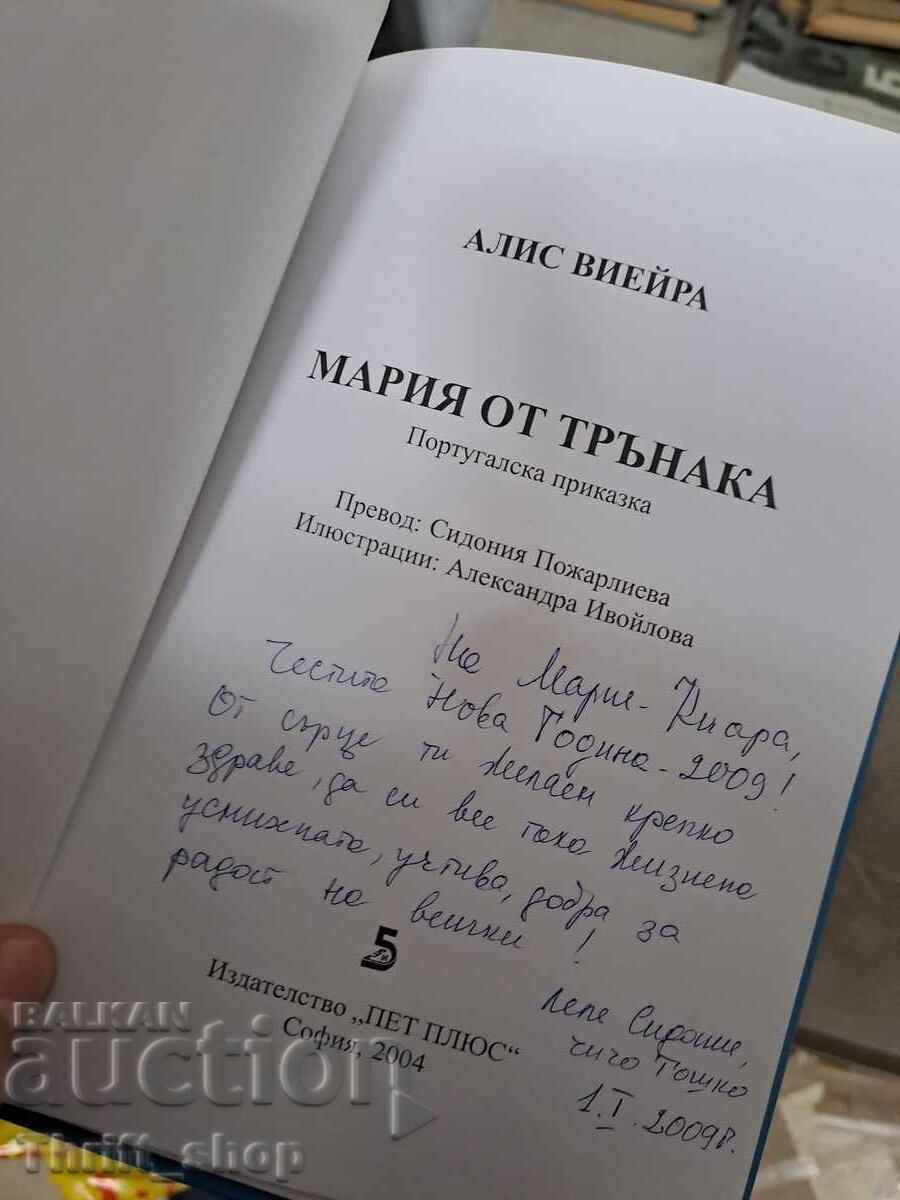 АЛИС ВИЕЙРА
МАРИЯ ОТ ТРЪНАКА
Португалска приказка
Превод: Сидония Пожарлиева
Илюстрации: Александра Ивойлова
На Мари-Киара,
Честита Нова Година - 2009!
От сърце ти желаем крепко
здраве, да си все така жизнена
усмихната, учтива, добра за
радост на всички!
5
Издателство „ПЕТ ПЛЮС“
София, 2004
Леле Сидони,
чичо Тошко
1.I.2009г.
BALKAN
auction
Thrift_shop